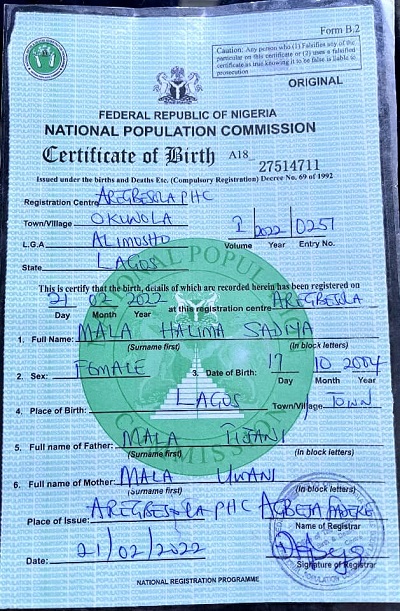 Form B.2
Caution: Any person who (1) Falsifies any of the
particular on this certificate or (2) uses a falsified
certificate as true knowing it to be false is liable to
prosecution
ORIGINAL
FEDERAL REPUBLIC OF NIGERIA
NATIONAL POPULATION COMMISSION
Certificate of Birth A18 27514711
Issued under the births and Deaths Etc. (Compulsory Registration) Decree No. 69 of 1992
Registration Centre AREGBESOLA PHC
Town/Village OKUNOLA 1 2022 0257
L.G.A ALIMOSHO Volume Year Entry No.
State LAGOS
This is certify that the birth, details of which are recorded herein has been registered on
21 02 2022 at this registration centre AREGBESOLA
Day Month Year
1. Full Name: MALA HALIMA SADIYA
(Surname first) (In block letters)
2. Sex: FEMALE 3. Date of Birth: 17 10 2004
Day Month Year
4. Place of Birth: LAGOS Town/Village TOWN
5. Full name of Father: MALA TIJANI
(Surname first) (In block letters)
6. Full name of Mother: MALA UWANI
(Surname first) (In block letters)
Place of Issue: AREGBESOLA PHC AGBEJA ADEKE
Name of Registrar
Date: 21/02/2022
Signature of Registrar
NATIONAL REGISTRATION PROGRAMME